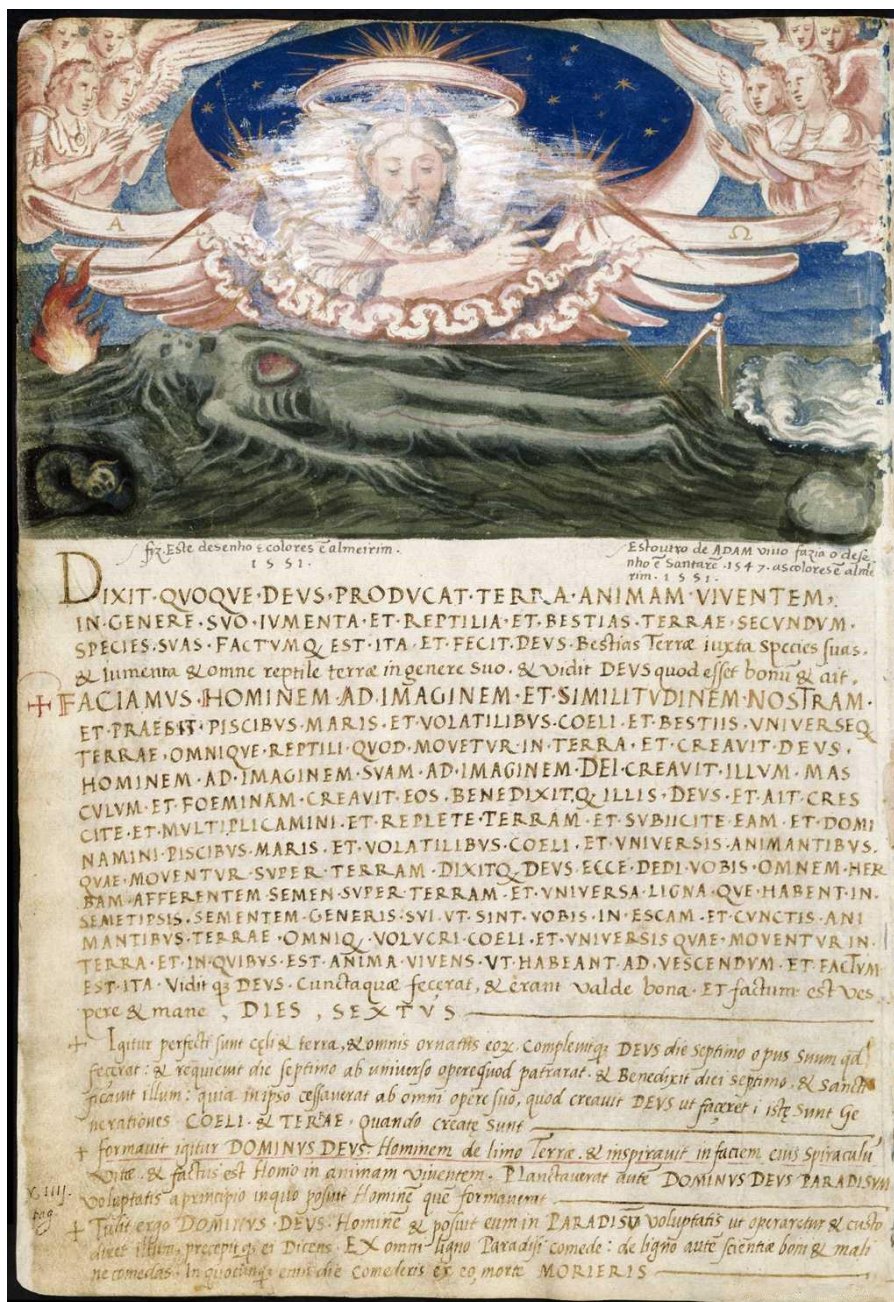 A
Ω
fiz. Este desenho & colores ē almeirim.
1551.
Estoutro de ADAM viuo fazia o dese
nho ē Santarē .1547. as colores ē alme
rim. 1551.
DIXIT·QVOQVE·DEVS·PRODVCAT·TERRA·ANIMAM·VIVENTEM,
IN·GENERE·SVO·IVMENTA·ET·REPTILIA·ET·BESTIAS·TERRAE·SECVNDVM·
SPECIES·SVAS·FACTVMQ·EST·ITA·ET·FECIT·DEVS·Bestias Terræ iuxta Species suas.
& iumenta & omne reptile terræ in genere suo. & vidit DEVS quod esset bonū & ait.
+ FACIAMVS·HOMINEM·AD·IMAGINEM·ET·SIMILITVDINEM·NOSTRAM·
ET·PRAESIT·PISCIBVS·MARIS·ET·VOLATILIBVS·COELI·ET·BESTIIS·VNIVERSEQ
TERRAE·OMNIQVE·REPTILI·QVOD·MOVETVR·IN·TERRA·ET·CREAVIT·DEVS·
HOMINEM·AD·IMAGINEM·SVAM·AD·IMAGINEM·DEI·CREAVIT·ILLVM·MAS
CVLVM·ET·FOEMINAM·CREAVIT·EOS·BENEDIXITQ·ILLIS·DEVS·ET·AIT·CRES
CITE·ET·MVLTIPLICAMINI·ET·REPLETE·TERRAM·ET·SVBIICITE·EAM·ET·DOMI
NAMINI·PISCIBVS·MARIS·ET·VOLATILIBVS·COELI·ET·VNIVERSIS·ANIMANTIBVS·
QVAE·MOVENTVR·SVPER·TERRAM·DIXITQ·DEVS·ECCE·DEDI·VOBIS·OMNEM·HER
BAM·AFFERENTEM·SEMEN·SVPER·TERRAM·ET·VNIVERSA·LIGNA·QVE·HABENT·IN·
SEMETIPSIS·SEMENTEM·GENERIS·SVI·VT·SINT·VOBIS·IN·ESCAM·ET·CVNCTIS·ANI
MANTIBVS·TERRAE·OMNIQ·VOLVCRI·COELI·ET·VNIVERSIS QVAE·MOVENTVR IN·
TERRA·ET·IN·QVIBVS·EST·ANIMA·VIVENS·VT·HABEANT·AD·VESCENDVM·ET·FACTVM
EST·ITA· Vidit qz DEVS· Cunctaquæ fecerat, & erant valde bona· ET factum est ves
pere & mane, DIES, SEXTVS
+ Igitur perfecti sunt cęli & terra, & omnis ornatus eoꝝ. Complevitqz DEVS die septimo opus Suum qd
fecerat: & requieuit die septimo ab universo opere quod patrarat. & Benedixit diei septimo. & sancti
ficauit illum: quia in ipso cessaverat ab omni opere suo, quod creavit DEVS ut faceret. istę Sunt Ge
nerationes COELI & TERRAE, Quando create Sunt
+ formavit igitur DOMINVS DEVS· Hominem de limo Terræ. & inspirauit in faciem eius Spiraculū
vitæ. & factus est Homo in animam viventem. Planctaverat autē DOMINVS DEVS PARADISVM
voluptatis a principio in quo posuit Hominē que formaverat
X. IIII.
pag.
+ Tulit ergo DOMINVS·DEVS·Hominē & posuit eum in PARADISV voluptatis ut operaretur & custo
diret illum, precepit qz ei Dicens. EX omni ligno Paradisi comede: de ligno autē scientiæ boni & mali
ne comedas. In quocunqz enim die comederis ex eo, morte MORIERIS